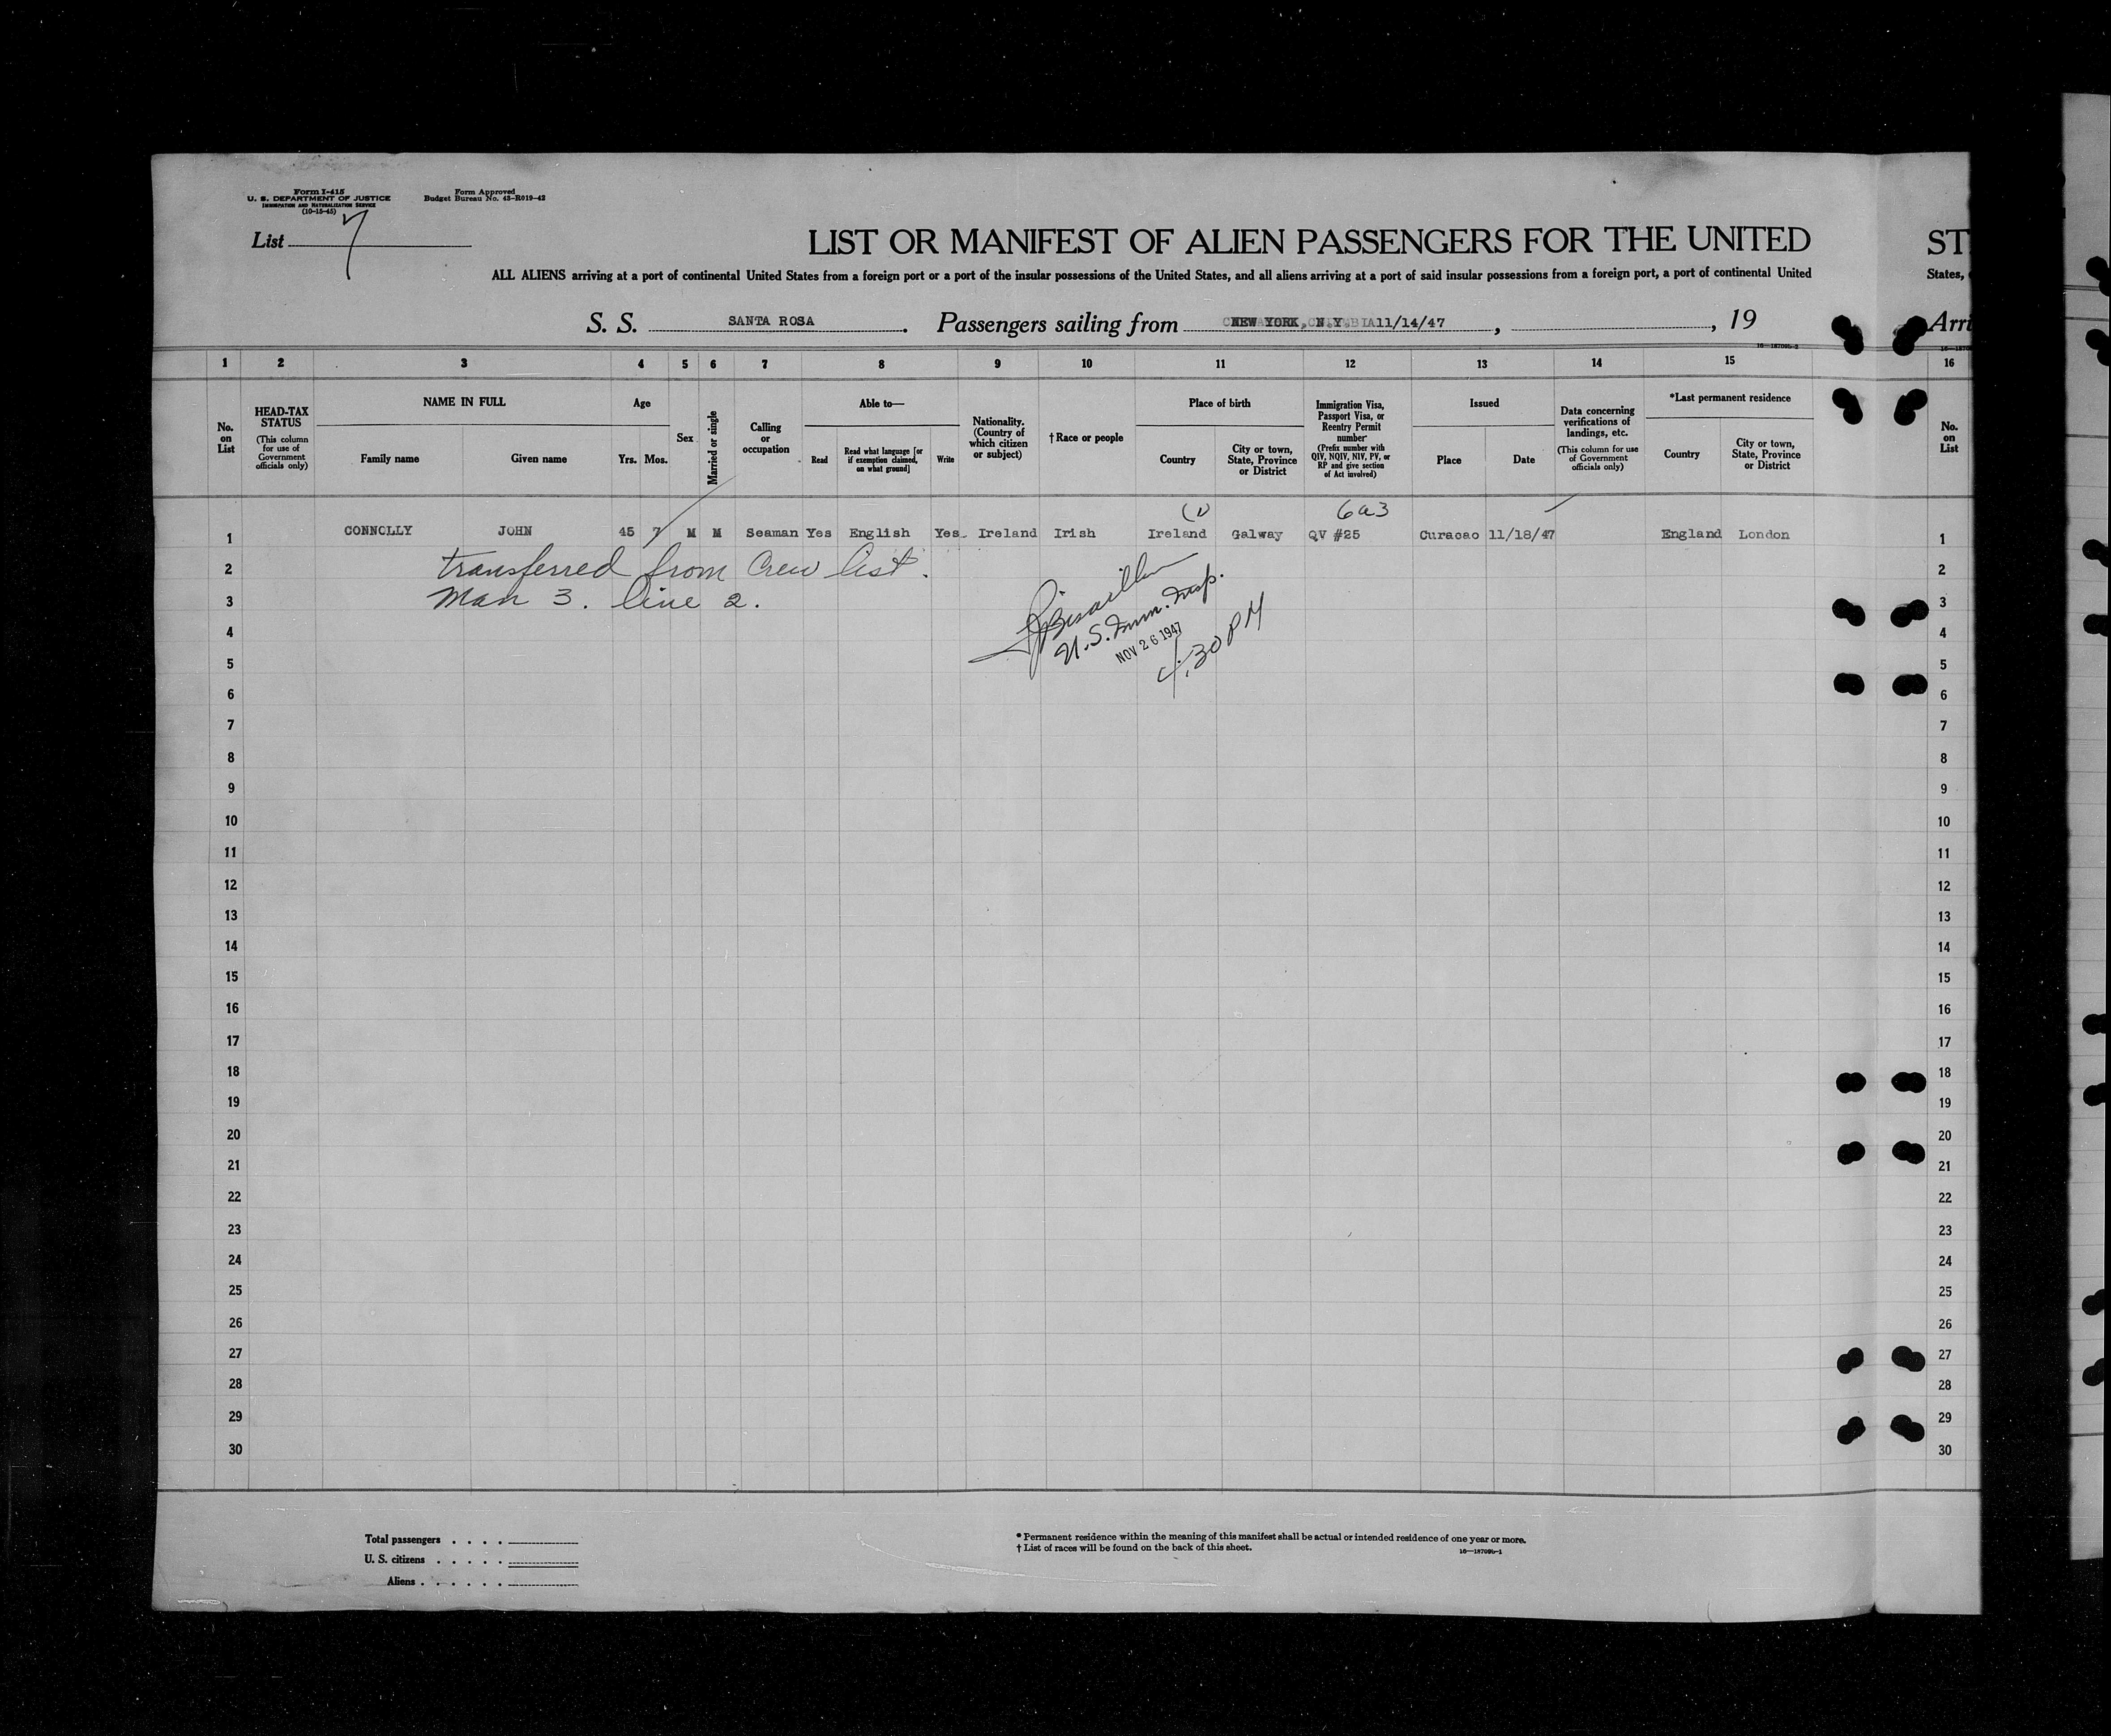 Form I-415
U. S. DEPARTMENT OF JUSTICE
IMMIGRATION AND NATURALIZATION SERVICE
(10-15-45)
Form Approved
Budget Bureau No. 43-R019-42
List 7
LIST OR MANIFEST OF ALIEN PASSENGERS FOR THE UNITED
ST
ALL ALIENS arriving at a port of continental United States from a foreign port or a port of the insular possessions of the United States, and all aliens arriving at a port of said insular possessions from a foreign port, a port of continental United
States,
S. S. SANTA ROSA. Passengers sailing from NEW YORK, N.Y. 11/14/47, , 19
Arri
1 2 3 4 5 6 7 8 9 10 11 12 13 14 15 16
No. on List
HEAD-TAX STATUS
(This column for use of Government officials only)
NAME IN FULL
Family name Given name
Age
Yrs. Mos.
Sex
Married or single
Calling or occupation
Able to—
Read
Read what language [or if exemption claimed, on what ground]
Write
Nationality. (Country of which citizen or subject)
† Race or people
Place of birth
Country
City or town, State, Province or District
Immigration Visa, Passport Visa, or Reentry Permit number
(Prefix number with QIV, NQIV, NIV, PV, or RP and give section of Act involved)
Issued
Place Date
Data concerning verifications of landings, etc.
(This column for use of Government officials only)
*Last permanent residence
Country
City or town, State, Province or District
No. on List
6a3
1 CONNOLLY JOHN 45 7 M M Seaman Yes English Yes Ireland Irish Ireland Galway QV #25 Curacao 11/18/47 England London 1
2 transferred from Crew list. 2
3 Man 3. line 2. 3
U.S. Imm. Insp.
NOV 26 1947
4:30 PM
4 4
5 5
6 6
7 7
8 8
9 9
10 10
11 11
12 12
13 13
14 14
15 15
16 16
17 17
18 18
19 19
20 20
21 21
22 22
23 23
24 24
25 25
26 26
27 27
28 28
29 29
30 30
Total passengers
U. S. citizens
Aliens
* Permanent residence within the meaning of this manifest shall be actual or intended residence of one year or more.
† List of races will be found on the back of this sheet.